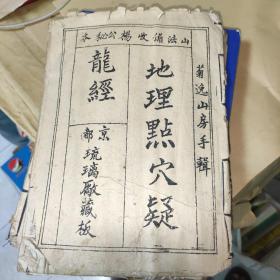 山法備收楊公秘本
菊逸山房手輯
地理點穴疑
龍經
京都琉璃廠藏板